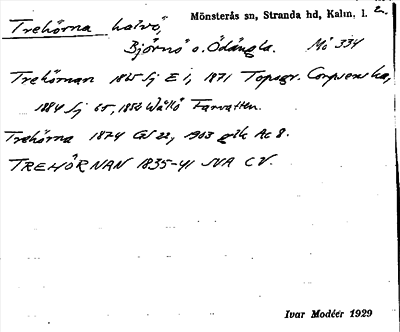 Trehörna halvö, Mönsterås sn, Stranda hd, Kalm. l.
Björnö o. Ödängla. Mö 334
Trehörnan 1825 Sj E 1, 1871 Topogr. Corpsens ka,
1884 Sj 65, 1850 Wållö Farvatten.
Trehörna 1874 GS 22, 1903 gsk Ac 8.
TREHÖRNAN 1835-41 SVA CV.
Ivar Modéer 1929